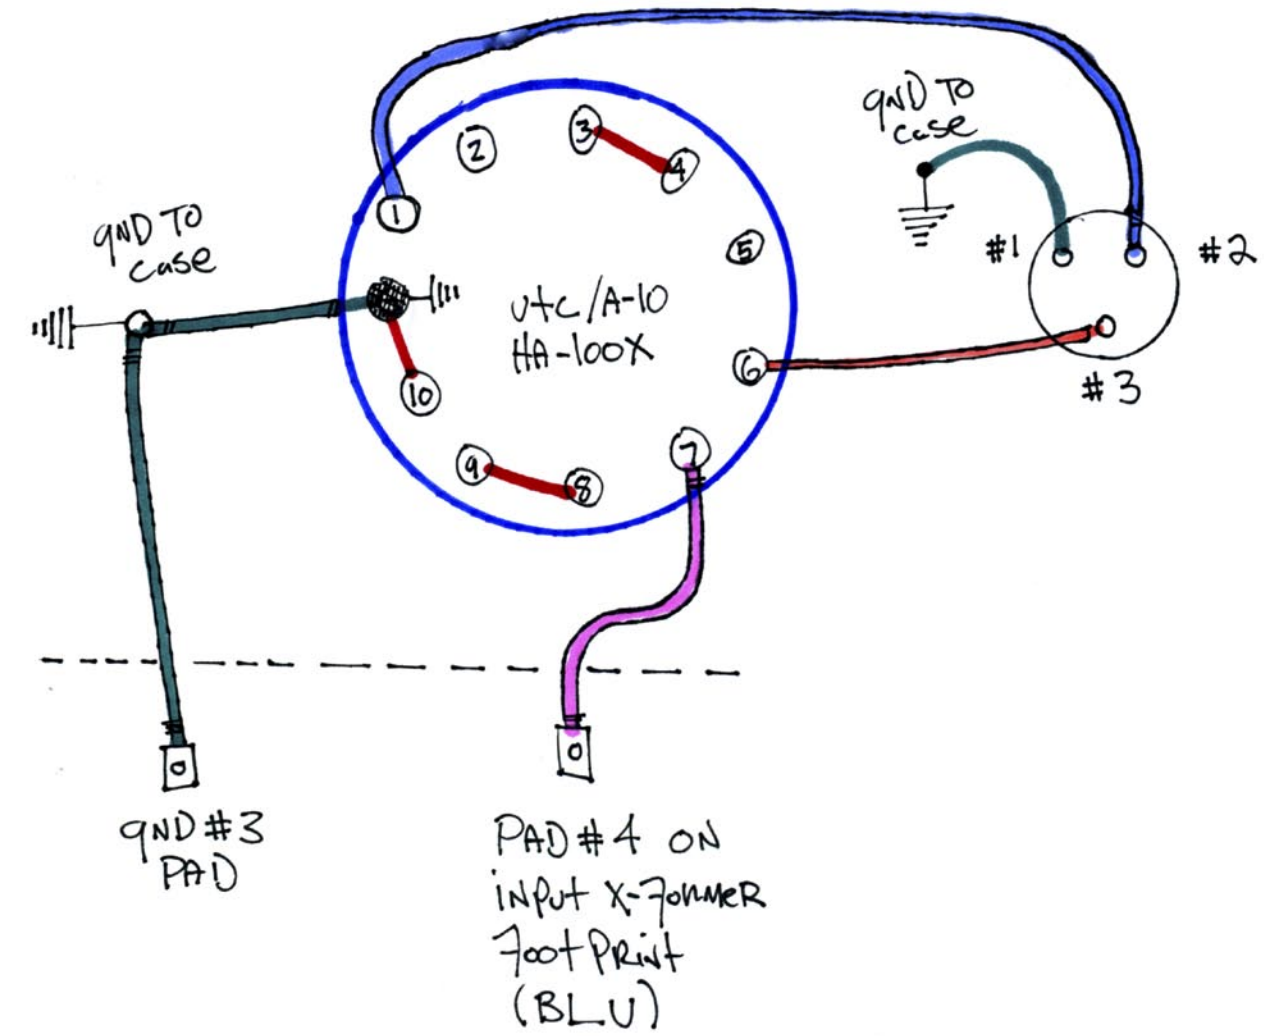 GND TO
case
#1
#2
#3
GND TO
case
1
2
3
4
5
6
7
8
9
10
UTC/A-10
HA-100X
GND #3
PAD
PAD #4 ON
INPUT X-FORMER
FOOTPRINT
(BLU)